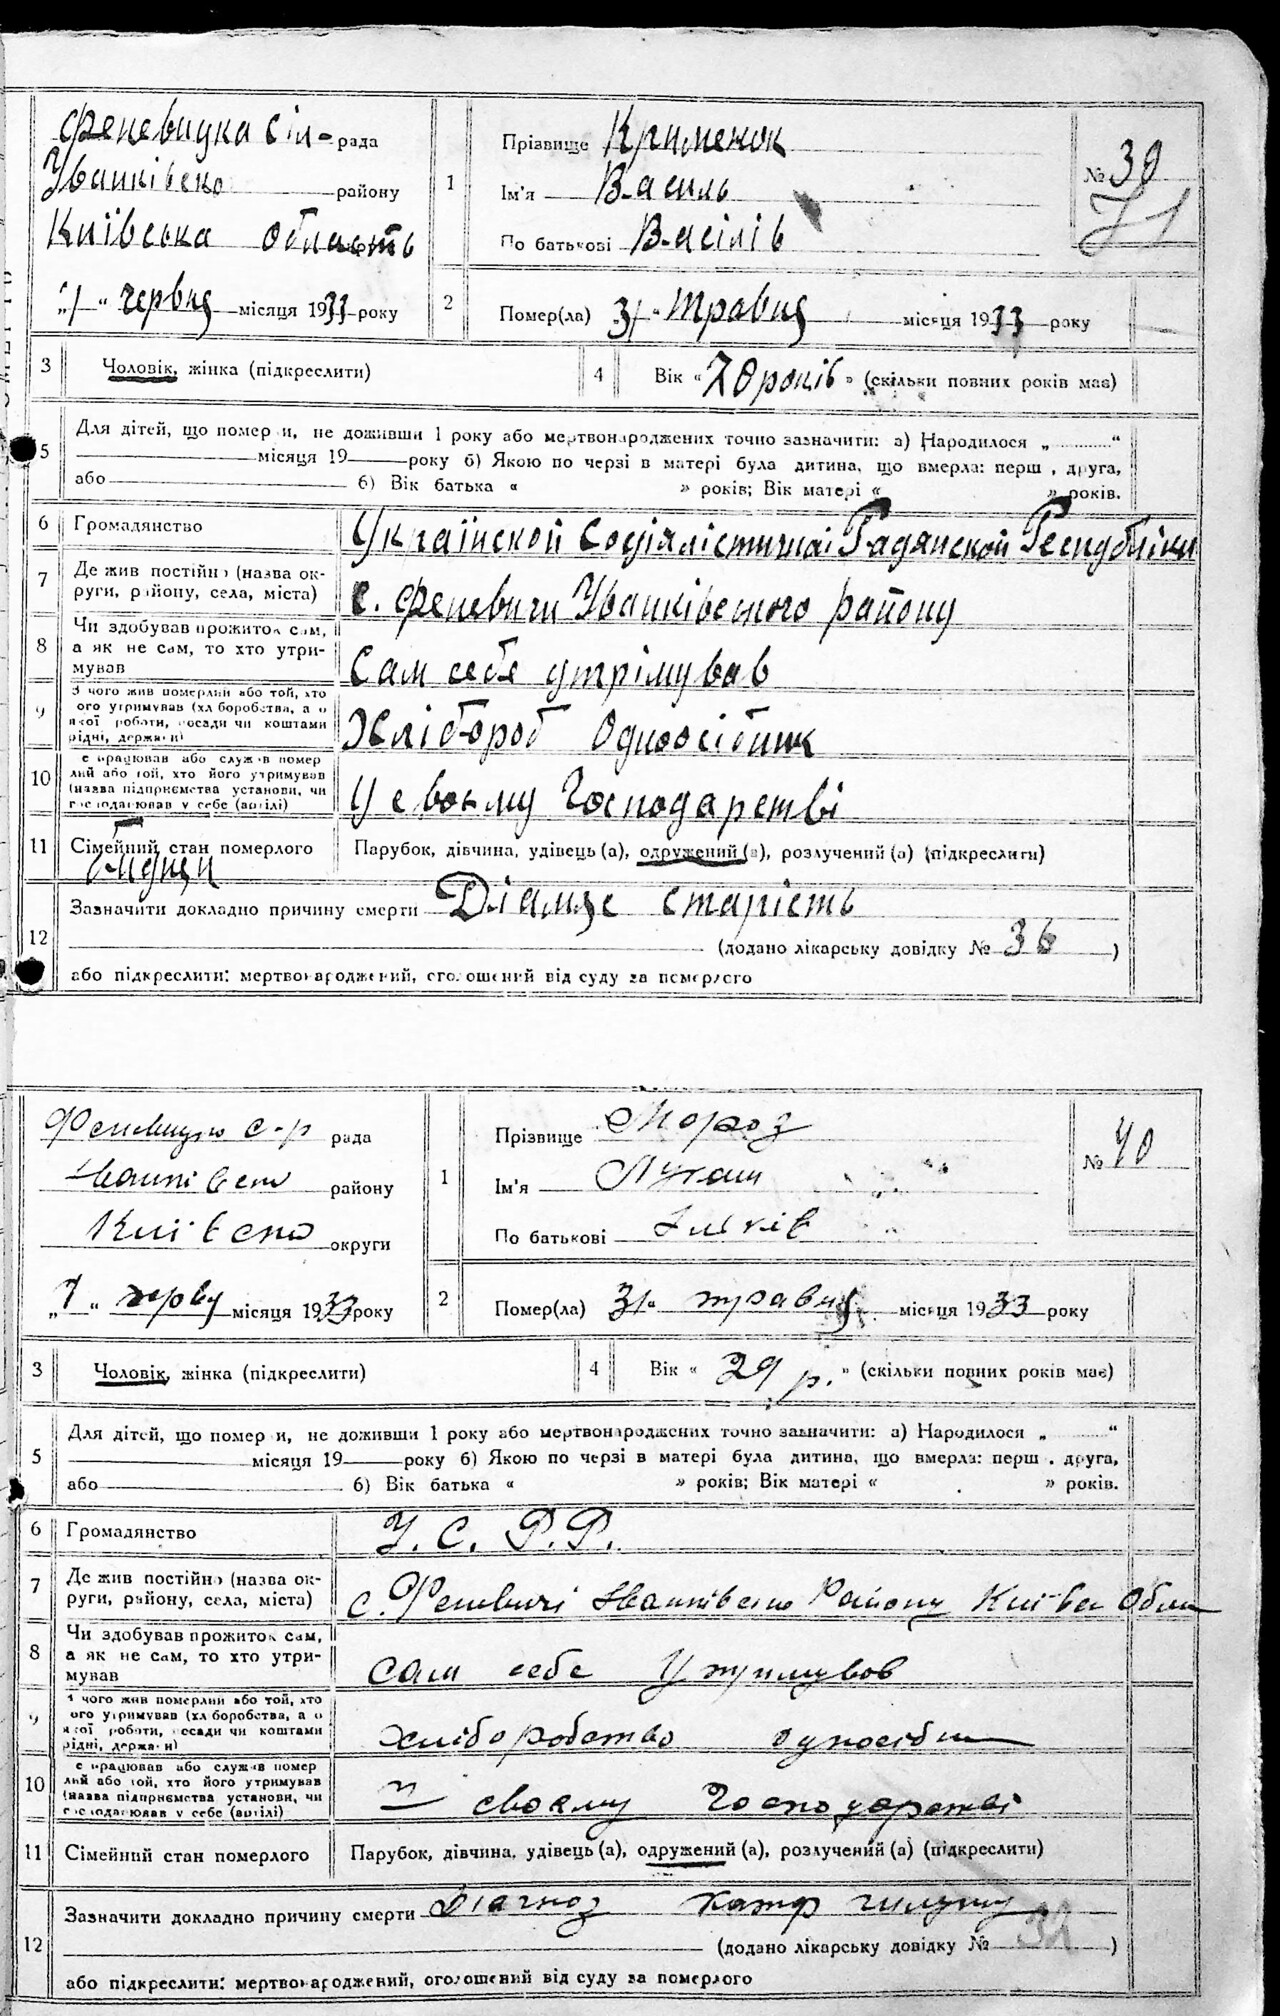 Феневицка Сіл- рада
Іванківсько району
Київська область
„1“ червця місяця 1933 року
1
Прізвище Крименок
Ім'я Василь
По батькові Васілів
№ 39
71
2
Помер(ла) 31 “ Травця місяця 1933 року
3 Чоловік, жінка (підкреслити)
4 Вік « 70 років » (скільки повних років мав)
5
Для дітей, що померли, не доживши 1 року або мертвонароджених точно зазначити: а) Народилося „ “
місяця 19 року б) Якою по черзі в матері була дитина, що вмерла: перш , друга,
або б) Вік батька « » років; Вік матері « » років.
6 Громадянство Українской Соціялістичної Радянской Республіки
7 Де жив постійно (назва ок-
руги, району, села, міста) с. Феневичи Іванківського району
8 Чи здобував прожиток сам,
а як не сам, то хто утри-
мував Сам себе утрімував
9 З чого жив померлий або той, хто
ого утримував (хл боробства, а о
якої роботи, посади чи коштами
рідні, держави) Хлібороб Одноосібник
10 е працював або служив помер
лий або той, хто його утримував
(назва підприємства установи, чи
господарював у себе (вділі) У своьму Господарстві
11 Сімейний стан померлого Парубок, дівчина, удівець (а), одружений (а), розлучений (а) (підкреслити)
12
Зазначити докладно причину смерти старість
(додано лікарську довідку № 36 )
або підкреслити: мертвонароджений, оголошений від суду за померлого
Феневицько с-р рада
Іванківсько району
Київсько округи
„1“ черву місяця 1933 року
1
Прізвище Мороз
Ім'я Лукаш
По батькові
№ 40
2
Помер(ла) 31“ травця місяця 1933 року
3 Чоловік, жінка (підкреслити)
4 Вік « 29 р. » (скільки повних років має)
5
Для дітей, що померли, не доживши 1 року або мертвонароджених точно зазначити: а) Народилося „ “
місяця 19 року б) Якою по черзі в матері була дитина, що вмерла: перш , друга,
або б) Вік батька « » років; Вік матері « » років.
6 Громадянство У. С. Р. Р.
7 Де жив постійно (назва ок-
руги, району, села, міста) с. Феневичі Іванківсько Району Київсь Обл
8 Чи здобував прожиток сам,
а як не сам, то хто утри-
мував сам себе утримував
9 З чого жив померлий або той, хто
ого утримував (хл боробства, а о
якої роботи, посади чи коштами
рідні, держави) хліборобство
10 е працював або служив помер
лий або той, хто його утримував
(назва підприємства установи, чи
господарював у себе (вділі) у своему Господарстві
11 Сімейний стан померлого Парубок, дівчина, удівець (а), одружений (а), розлучений (а) (підкреслити)
12
Зазначити докладно причину смерти Діагноз
(додано лікарську довідку № )
або підкреслити: мертвонароджений, оголошений від суду за померлого